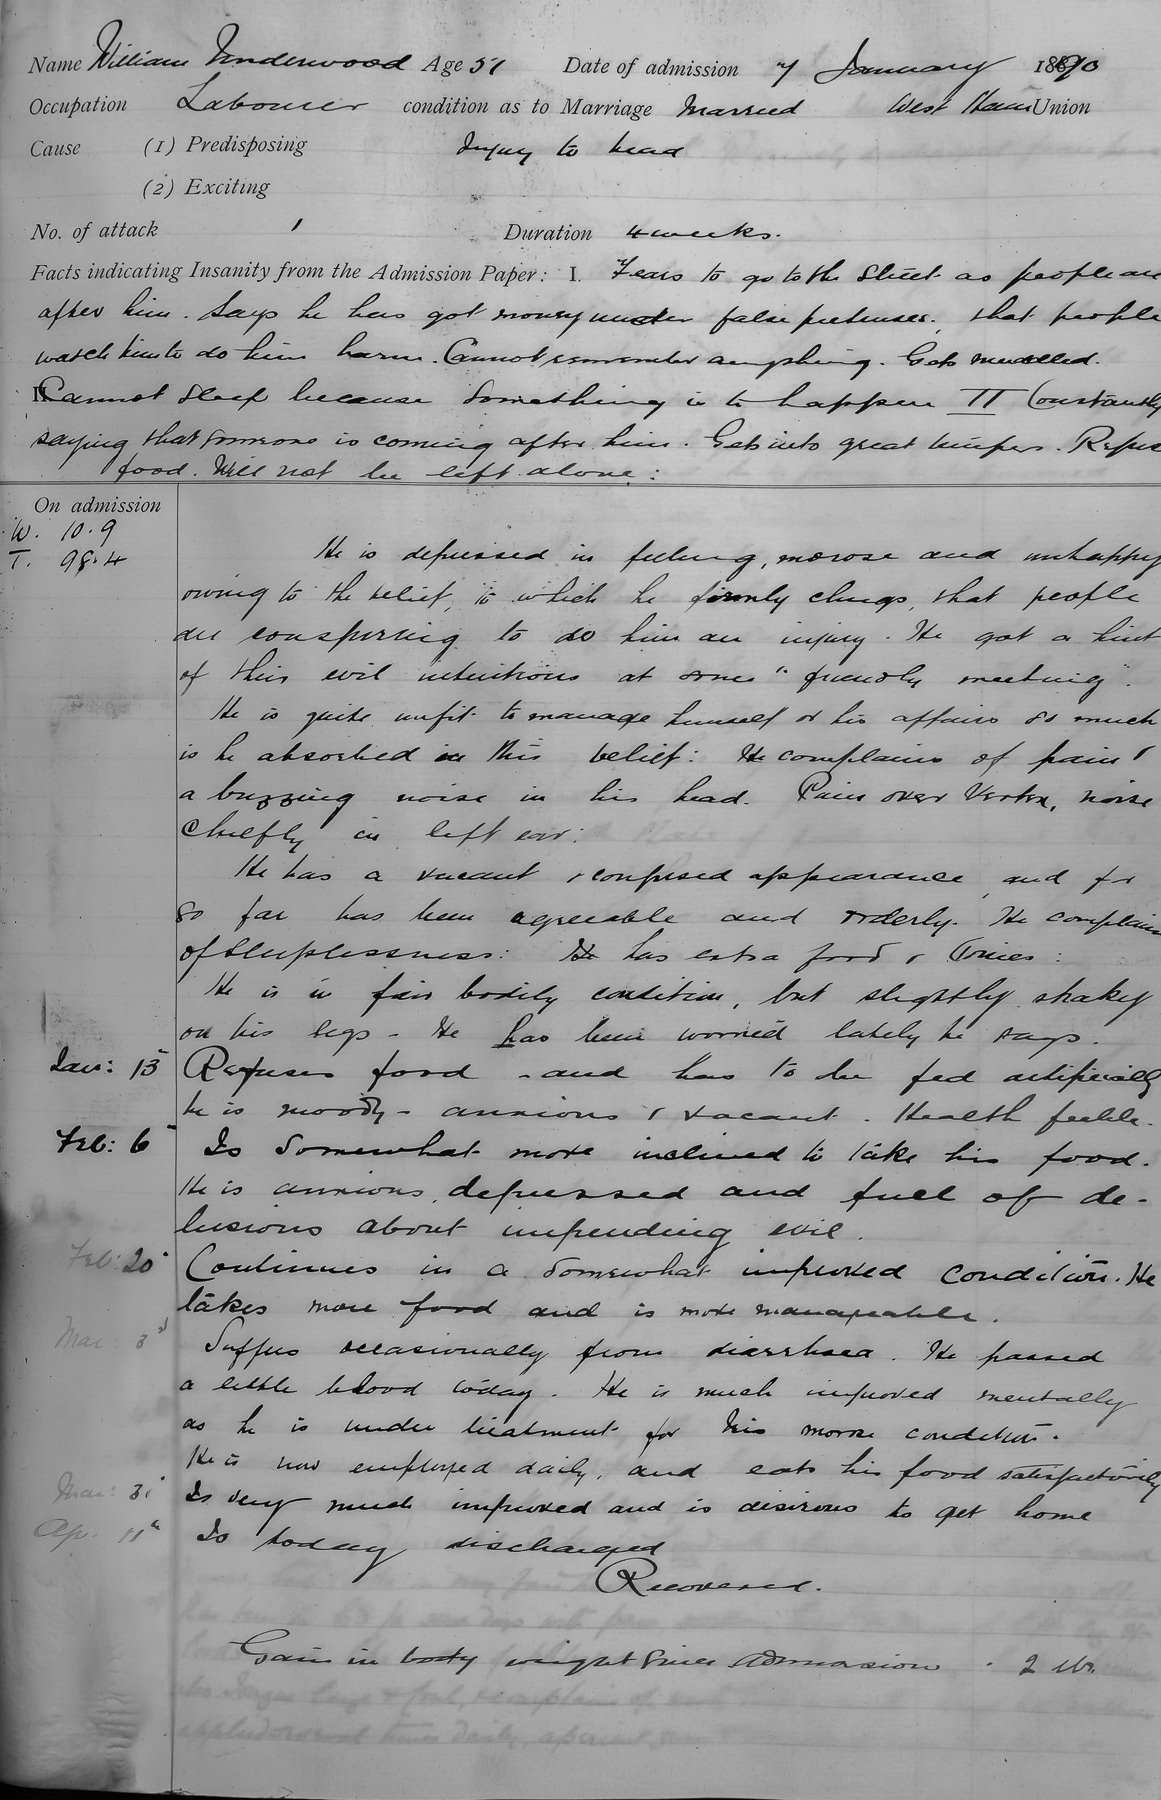 Name William Underwood Age 51 Date of admission 7 January 1890
Occupation Labourer condition as to Marriage Married West Ham Union
Cause (1) Predisposing Injury to head
(2) Exciting
No. of attack 1 Duration 4 weeks.
Facts indicating Insanity from the Admission Paper: I. Fears to go to the Street as people are
after him. Says he has got money under false pretenses, that people
watch him to do him harm. Cannot remember anything. Gets muddled.
Cannot sleep because something is to happen II Constantly
saying that someone is coming after him. Gets into great tempers. Refuses
food. Will not be left alone:
On admission
W. 10.9
T. 98.4
He is depressed in feeling, morose and unhappy
owing to the belief, to which he firmly clings, that people
are conspiring to do him an injury. He got a hint
of their evil intentions at some "friendly meeting".
He is quite unfit to manage himself or his affairs so much
is he absorbed in this belief: He complains of pain &
a buzzing noise in his head. Pain over Vertex, noise
chiefly in left ear:
He has a vacant & confused appearance, and for
so far has been agreeable and orderly. He complains
of Sleeplessness: He has extra food & Tonics:
He is in fair bodily condition, but slightly shaky
on his legs - He has been worried lately he says.
Jan: 15 Refuses food - and has to be fed artificially
he is moody - anxious & vacant. Health feeble.
Feb: 6 Is somewhat more inclined to take his food.
He is anxious, depressed and full of de-
lusions about impending evil.
Feb: 20 Continues in a somewhat improved condition. He
takes more food and is more manageable.
Mar: 3rd Suffers occasionally from diarrhoea. He passed
a little blood today. He is much improved mentally
as he is under treatment for this morose condition.
He is now employed daily, and eats his food satisfactorily
Mar: 31 Is very much improved and is desirous to get home
Ap. 11th Is today discharged
Recovered.
Gain in body weight since admission - 2 lbs.